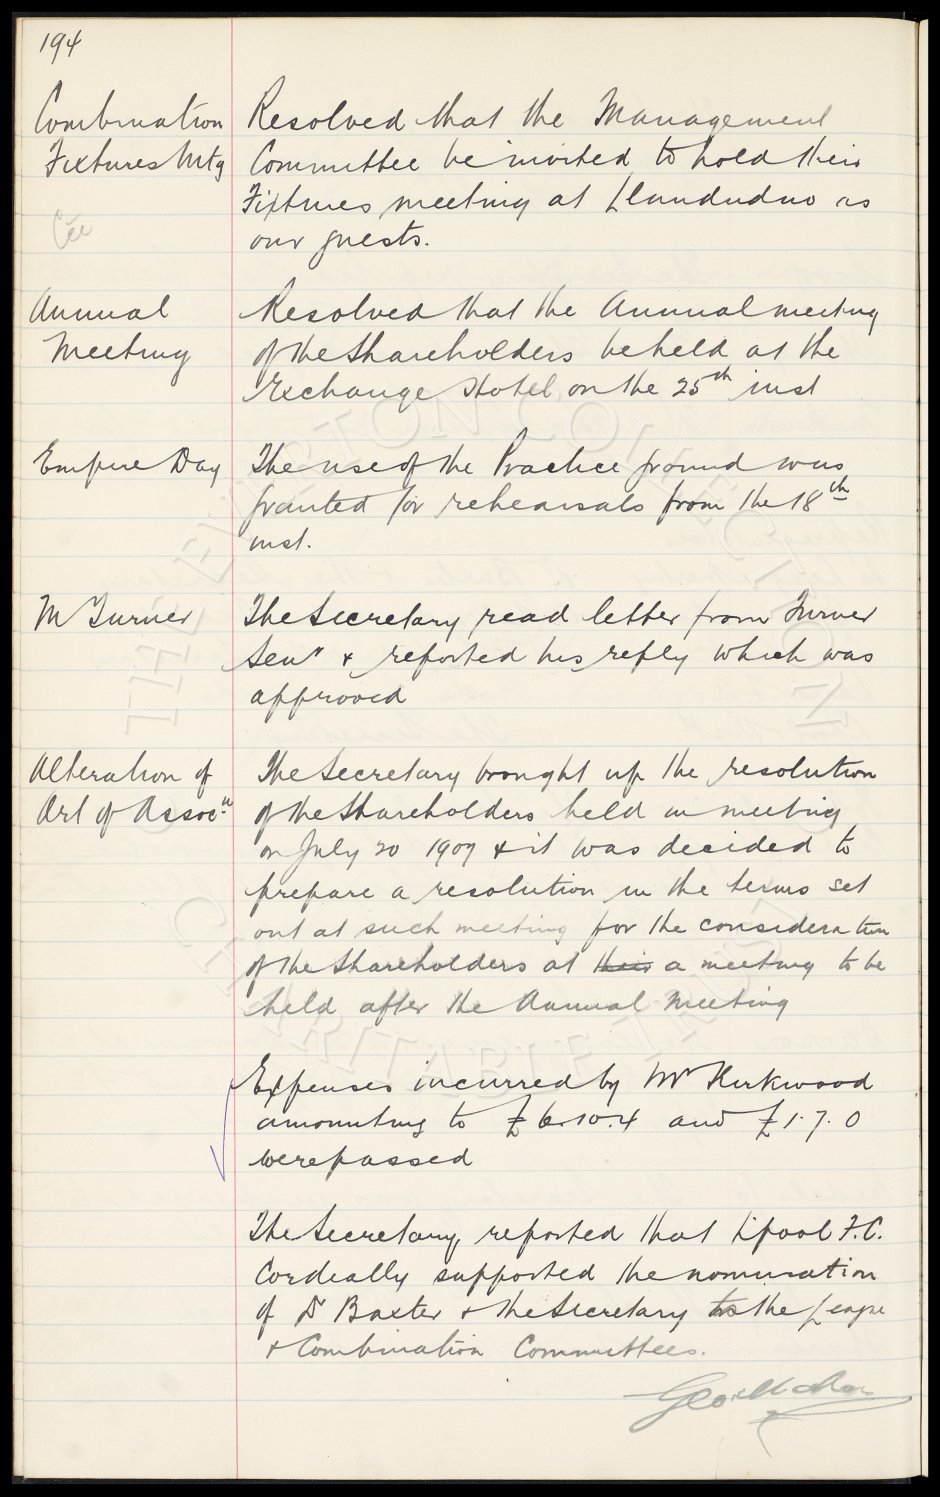 194
Combination
Fixtures Mtg
Resolved that the Management
Committee be invited to hold their
Fixtures meeting at Llandudno as
our guests.
Annual
Meeting
Resolved that the Annual meeting
of the Shareholders be held at the
Exchange Hotel on the 25th inst
Empire Day
The use of the Practice ground was
granted for rehearsals from the 18th
inst.
M Turner
The Secretary read letter from Turner
Senr & reported his reply which was
approved
Alteration of
Art of Assocn
The Secretary brought up the resolution
of the Shareholders held in meeting
on July 20 1909 & it was decided to
prepare a resolution in the terms set
out at such meeting for the consideration
of the Shareholders at their a meeting to be
held after the Annual Meeting
Expenses incurred by Mr Kirkwood
amounting to £6.10.4 and £1.7.0
were passed
The Secretary reported that L'pool F.C.
Cordially supported the nomination
of Dr Baxter & the Secretary to the League
& Combination Committees.
Geo Mahon
THE EVERTON COLLECTION
CHARITABLE TRUST